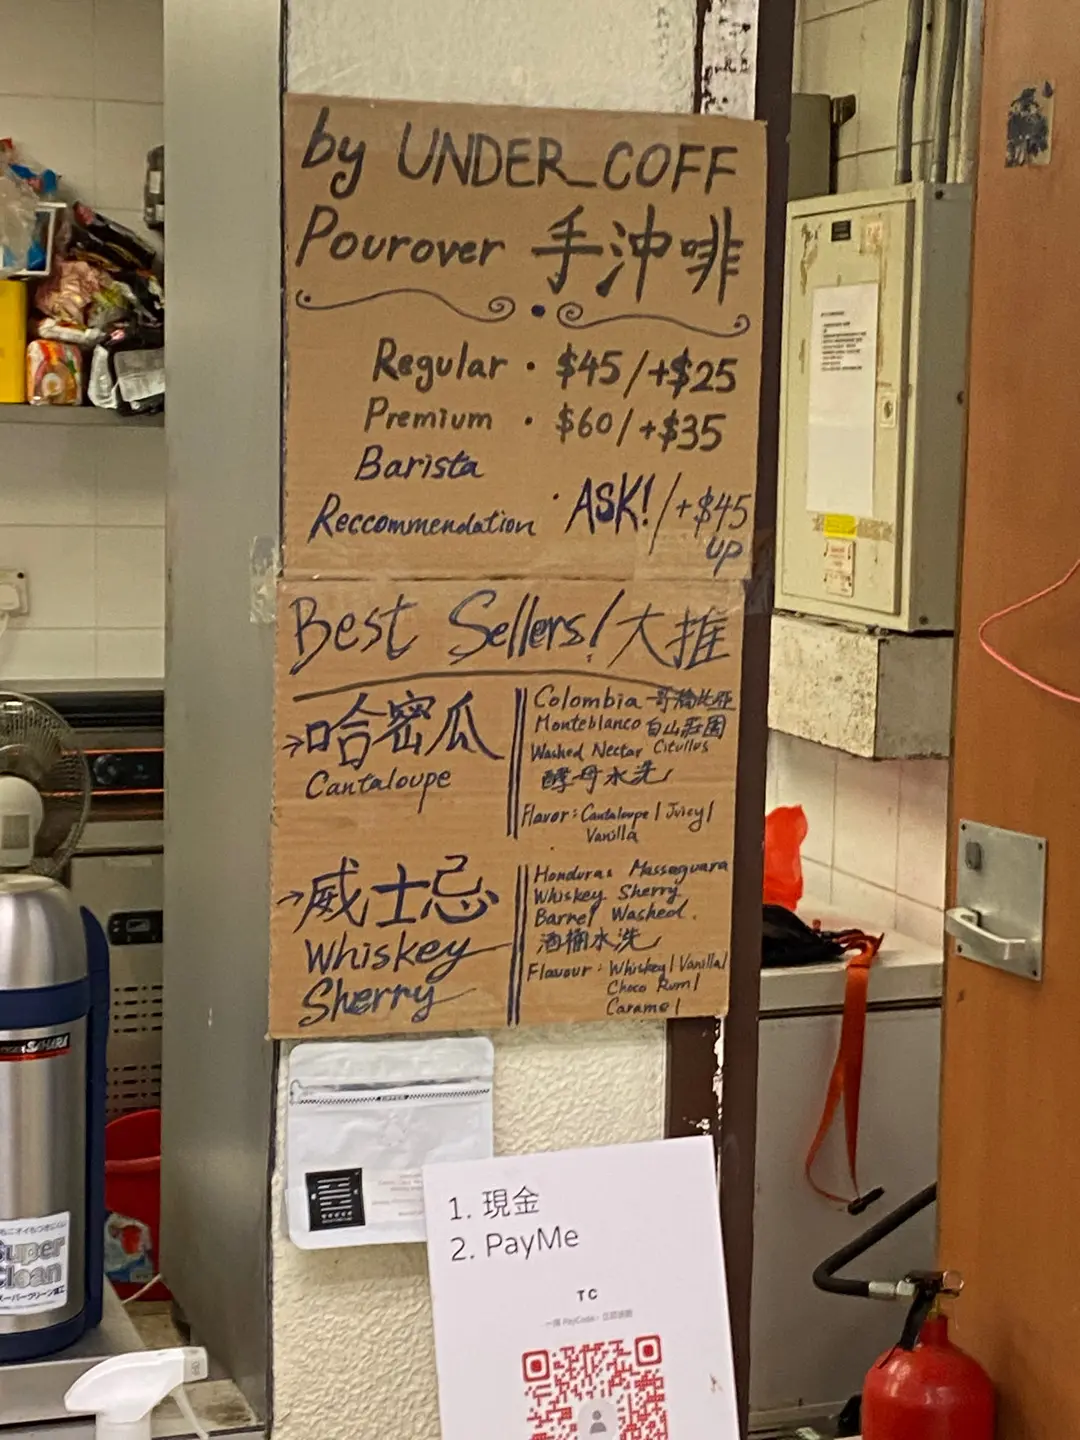 by UNDER_COFF
Pourover 手沖啡
Regular · $45/+$25
Premium · $60/+$35
Barista
Reccommendation · ASK!/+$45
up
Best Sellers! 大推
→哈密瓜
Cantaloupe
Colombia 哥倫比亞
Monteblanco 白山莊園
Washed Nectar Citullus
酵母水洗
Flavor: Cantaloupe | Juicy |
Vanilla
→威士忌
Whiskey
Sherry
Honduras Massaguara
Whiskey Sherry
Barrel Washed.
酒桶水洗
Flavour: Whiskey | Vanilla |
Choco Rum |
Caramel
1. 現金
2. PayMe
TC
SAHARA
Super
Clean